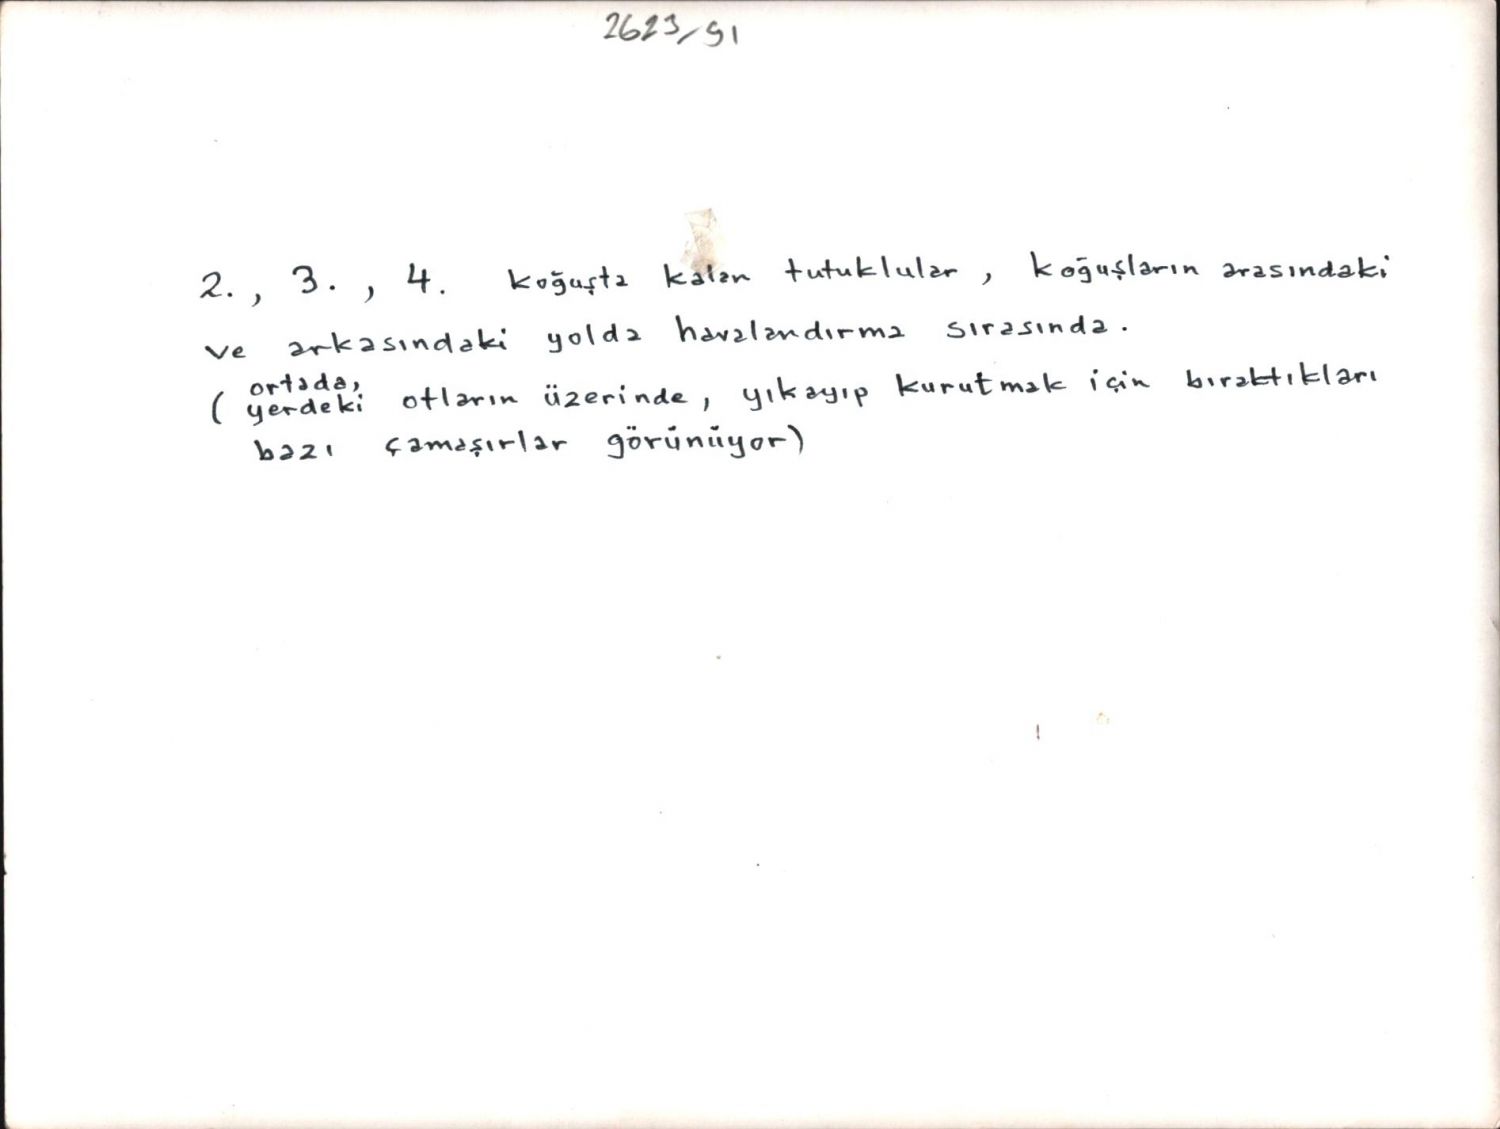 2623/91
2., 3., 4. koğuşta kalan tutuklular, koğuşların arasındaki
ve arkasındaki yolda havalandırma sırasında.
ortada,
( yerdeki otların üzerinde, yıkayıp kurutmak için bıraktıkları
bazı çamaşırlar görünüyor)